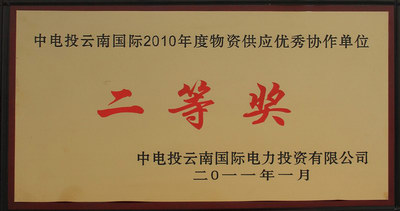 中电投云南国际2010年度物资供应优秀协作单位
二等奖
中电投云南国际电力投资有限公司
二〇一一年一月